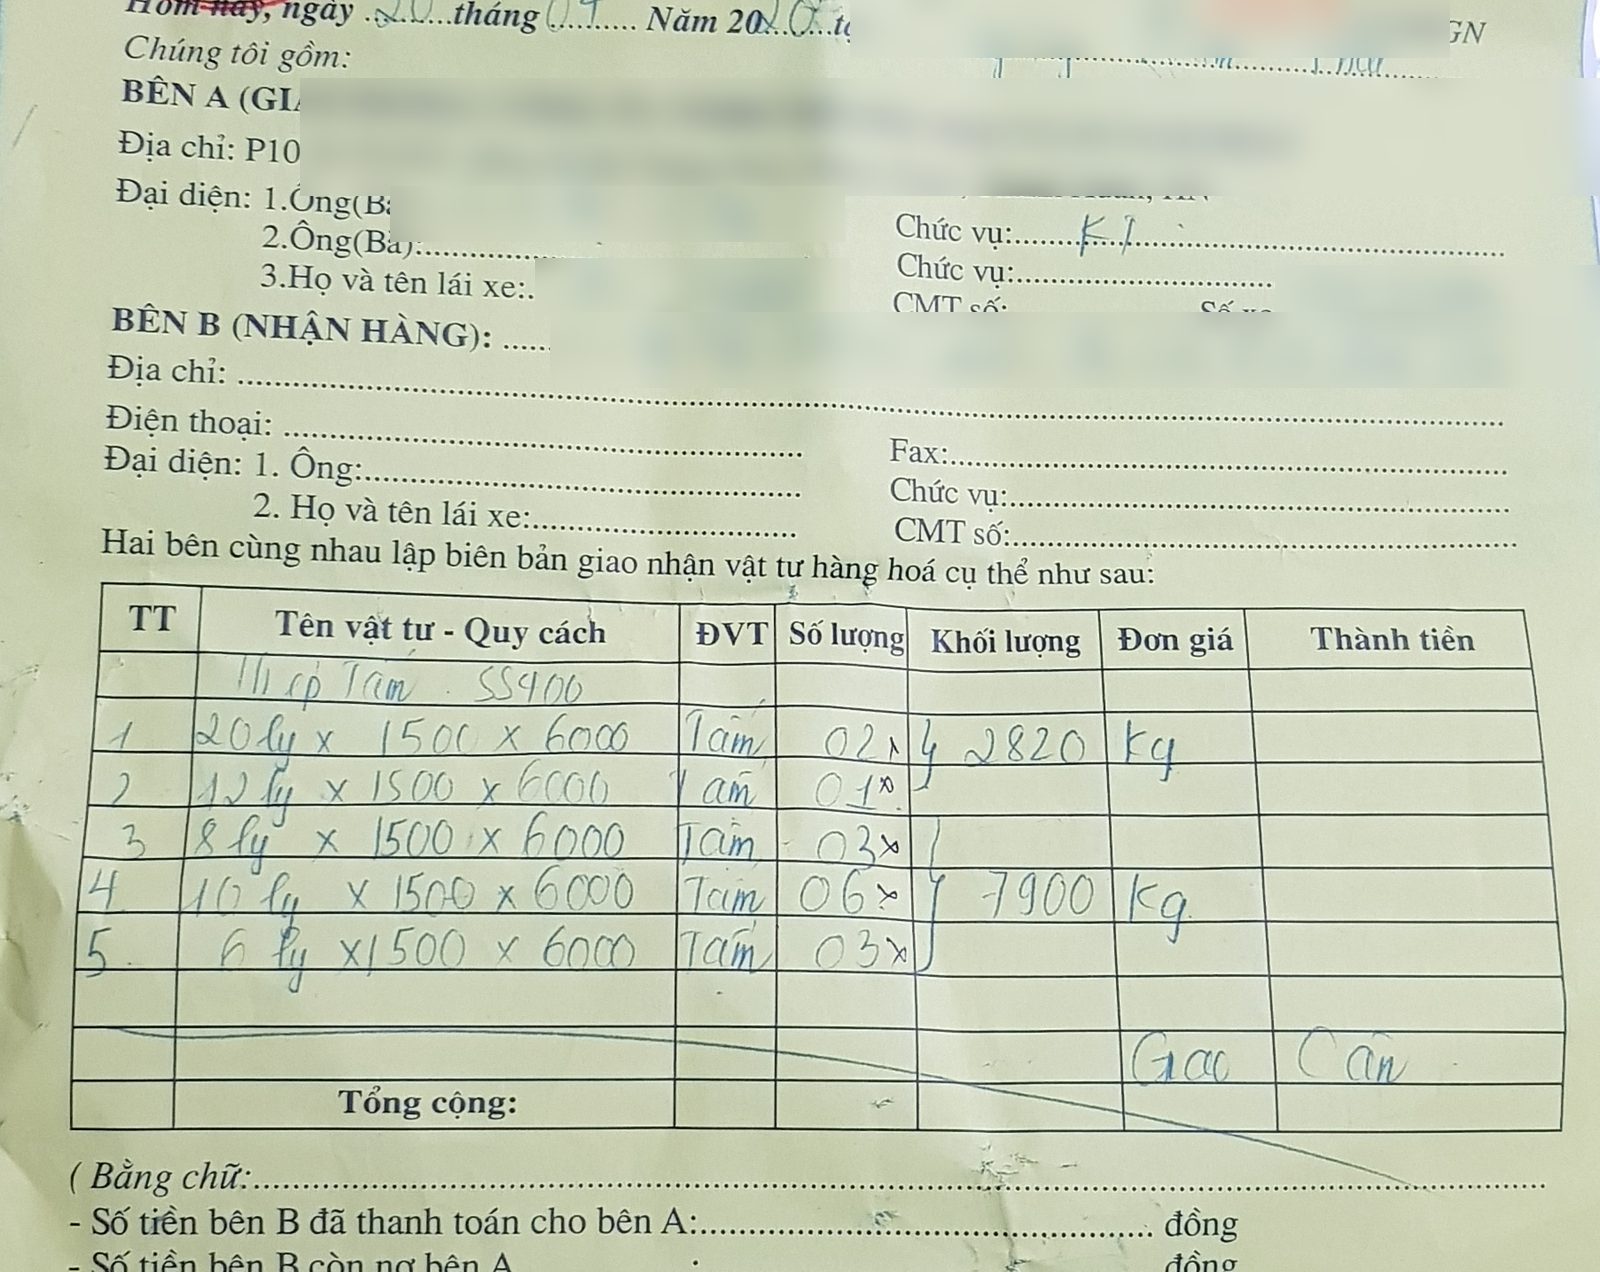 Hôm nay, ngày 20 tháng Năm 2020
GN
Chúng tôi gồm:
BÊN A
Địa chỉ: P10
Đại diện: 1.Ông(Bà Chức vụ: KD
2.Ông(Bà): Chức vụ:
3.Họ và tên lái xe: CMT số: Số xe
BÊN B (NHẬN HÀNG):
Địa chỉ:
Điện thoại: Fax:
Đại diện: 1. Ông: Chức vụ:
2. Họ và tên lái xe: CMT số:
Hai bên cùng nhau lập biên bản giao nhận vật tư hàng hoá cụ thể như sau:
TT Tên vật tư - Quy cách ĐVT Số lượng Khối lượng Đơn giá Thành tiền
Thép Tấm SS400
1 20 ly x 1500 x 6000 Tấm 02 x } 2820 Kg
2 12 ly x 1500 x 6000 Tấm 01 x
3 8 ly x 1500 x 6000 Tấm 03 x
4 10 ly x 1500 x 6000 Tấm 06 x } 7900 Kg
5 6 ly x 1500 x 6000 Tấm 03 x
Giao Cân
Tổng cộng:
( Bằng chữ:
- Số tiền bên B đã thanh toán cho bên A: đồng
- Số tiền bên B còn nợ bên A : đồng